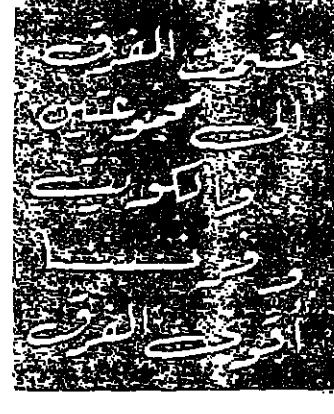 قسمت الفرق
الى مجموعتين
والكويت
وفرنسا
أقوى الفرق